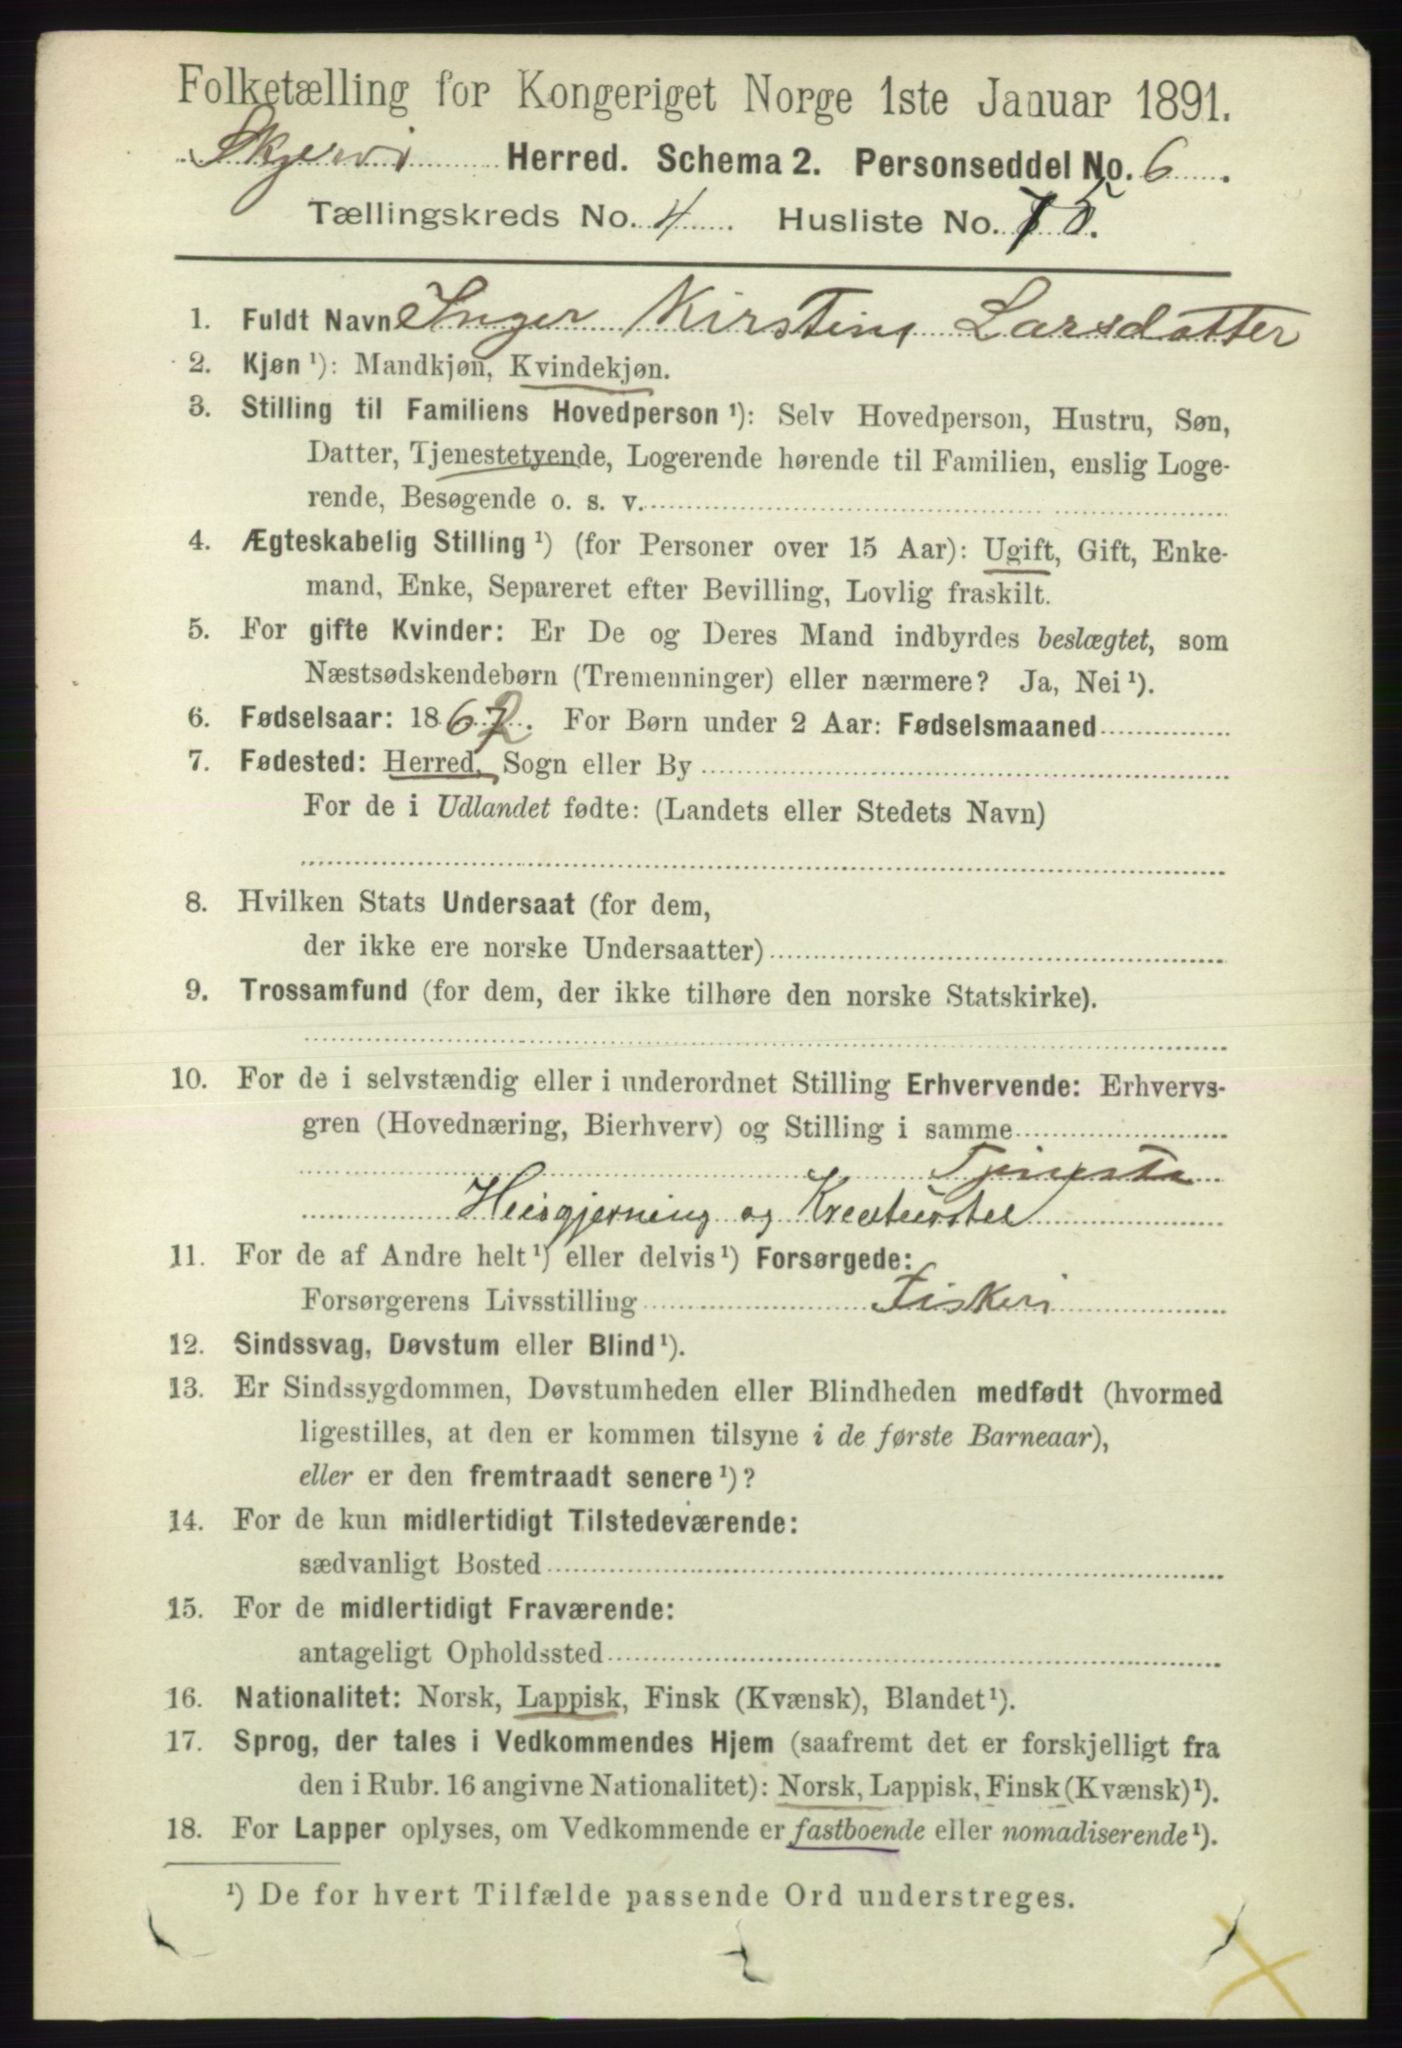 Folketælling for Kongeriget Norge 1ste Januar 1891.
Skjervø Herred. Schema 2. Personseddel No. 6.
Tællingskreds No. 4. Husliste No. 75.
1. Fuldt Navn Inger Kirstine Larsdatter
2. Kjøn ¹): Mandkjøn, Kvindekjøn.
3. Stilling til Familiens Hovedperson ¹): Selv Hovedperson, Hustru, Søn,
Datter, Tjenestetyende, Logerende hørende til Familien, enslig Loge-
rende, Besøgende o. s. v.
4. Ægteskabelig Stilling ¹) (for Personer over 15 Aar): Ugift, Gift, Enke-
mand, Enke, Separeret efter Bevilling, Lovlig fraskilt.
5. For gifte Kvinder: Er De og Deres Mand indbyrdes beslægtet, som
Næstsødskendebørn (Tremenninger) eller nærmere? Ja, Nei ¹).
6. Fødselsaar: 186. For Børn under 2 Aar: Fødselsmaaned
7. Fødested: Herred, Sogn eller By
For de i Udlandet fødte: (Landets eller Stedets Navn)
8. Hvilken Stats Undersaat (for dem,
der ikke ere norske Undersaatter)
9. Trossamfund (for dem, der ikke tilhøre den norske Statskirke).
10. For de i selvstændig eller i underordnet Stilling Erhvervende: Erhvervs-
gren (Hovednæring, Bierhverv) og Stilling i samme
Husgjerning og Kreaturstel
11. For de af Andre helt ¹) eller delvis ¹) Forsørgede:
Forsørgerens Livsstilling Fiskeri
12. Sindssvag, Døvstum eller Blind ¹).
13. Er Sindssygdommen, Døvstumheden eller Blindheden medfødt (hvormed
ligestilles, at den er kommen tilsyne i de første Barneaar),
eller er den fremtraadt senere ¹)?
14. For de kun midlertidigt Tilstedeværende:
sædvanligt Bosted
15. For de midlertidigt Fraværende:
antageligt Opholdssted
16. Nationalitet: Norsk, Lappisk, Finsk (Kvænsk), Blandet ¹).
17. Sprog, der tales i Vedkommendes Hjem (saafremt det er forskjelligt fra
den i Rubr. 16 angivne Nationalitet): Norsk, Lappisk, Finsk (Kvænsk) ¹).
18. For Lapper oplyses, om Vedkommende er fastboende eller nomadiserende ¹).
¹) De for hvert Tilfælde passende Ord understreges.